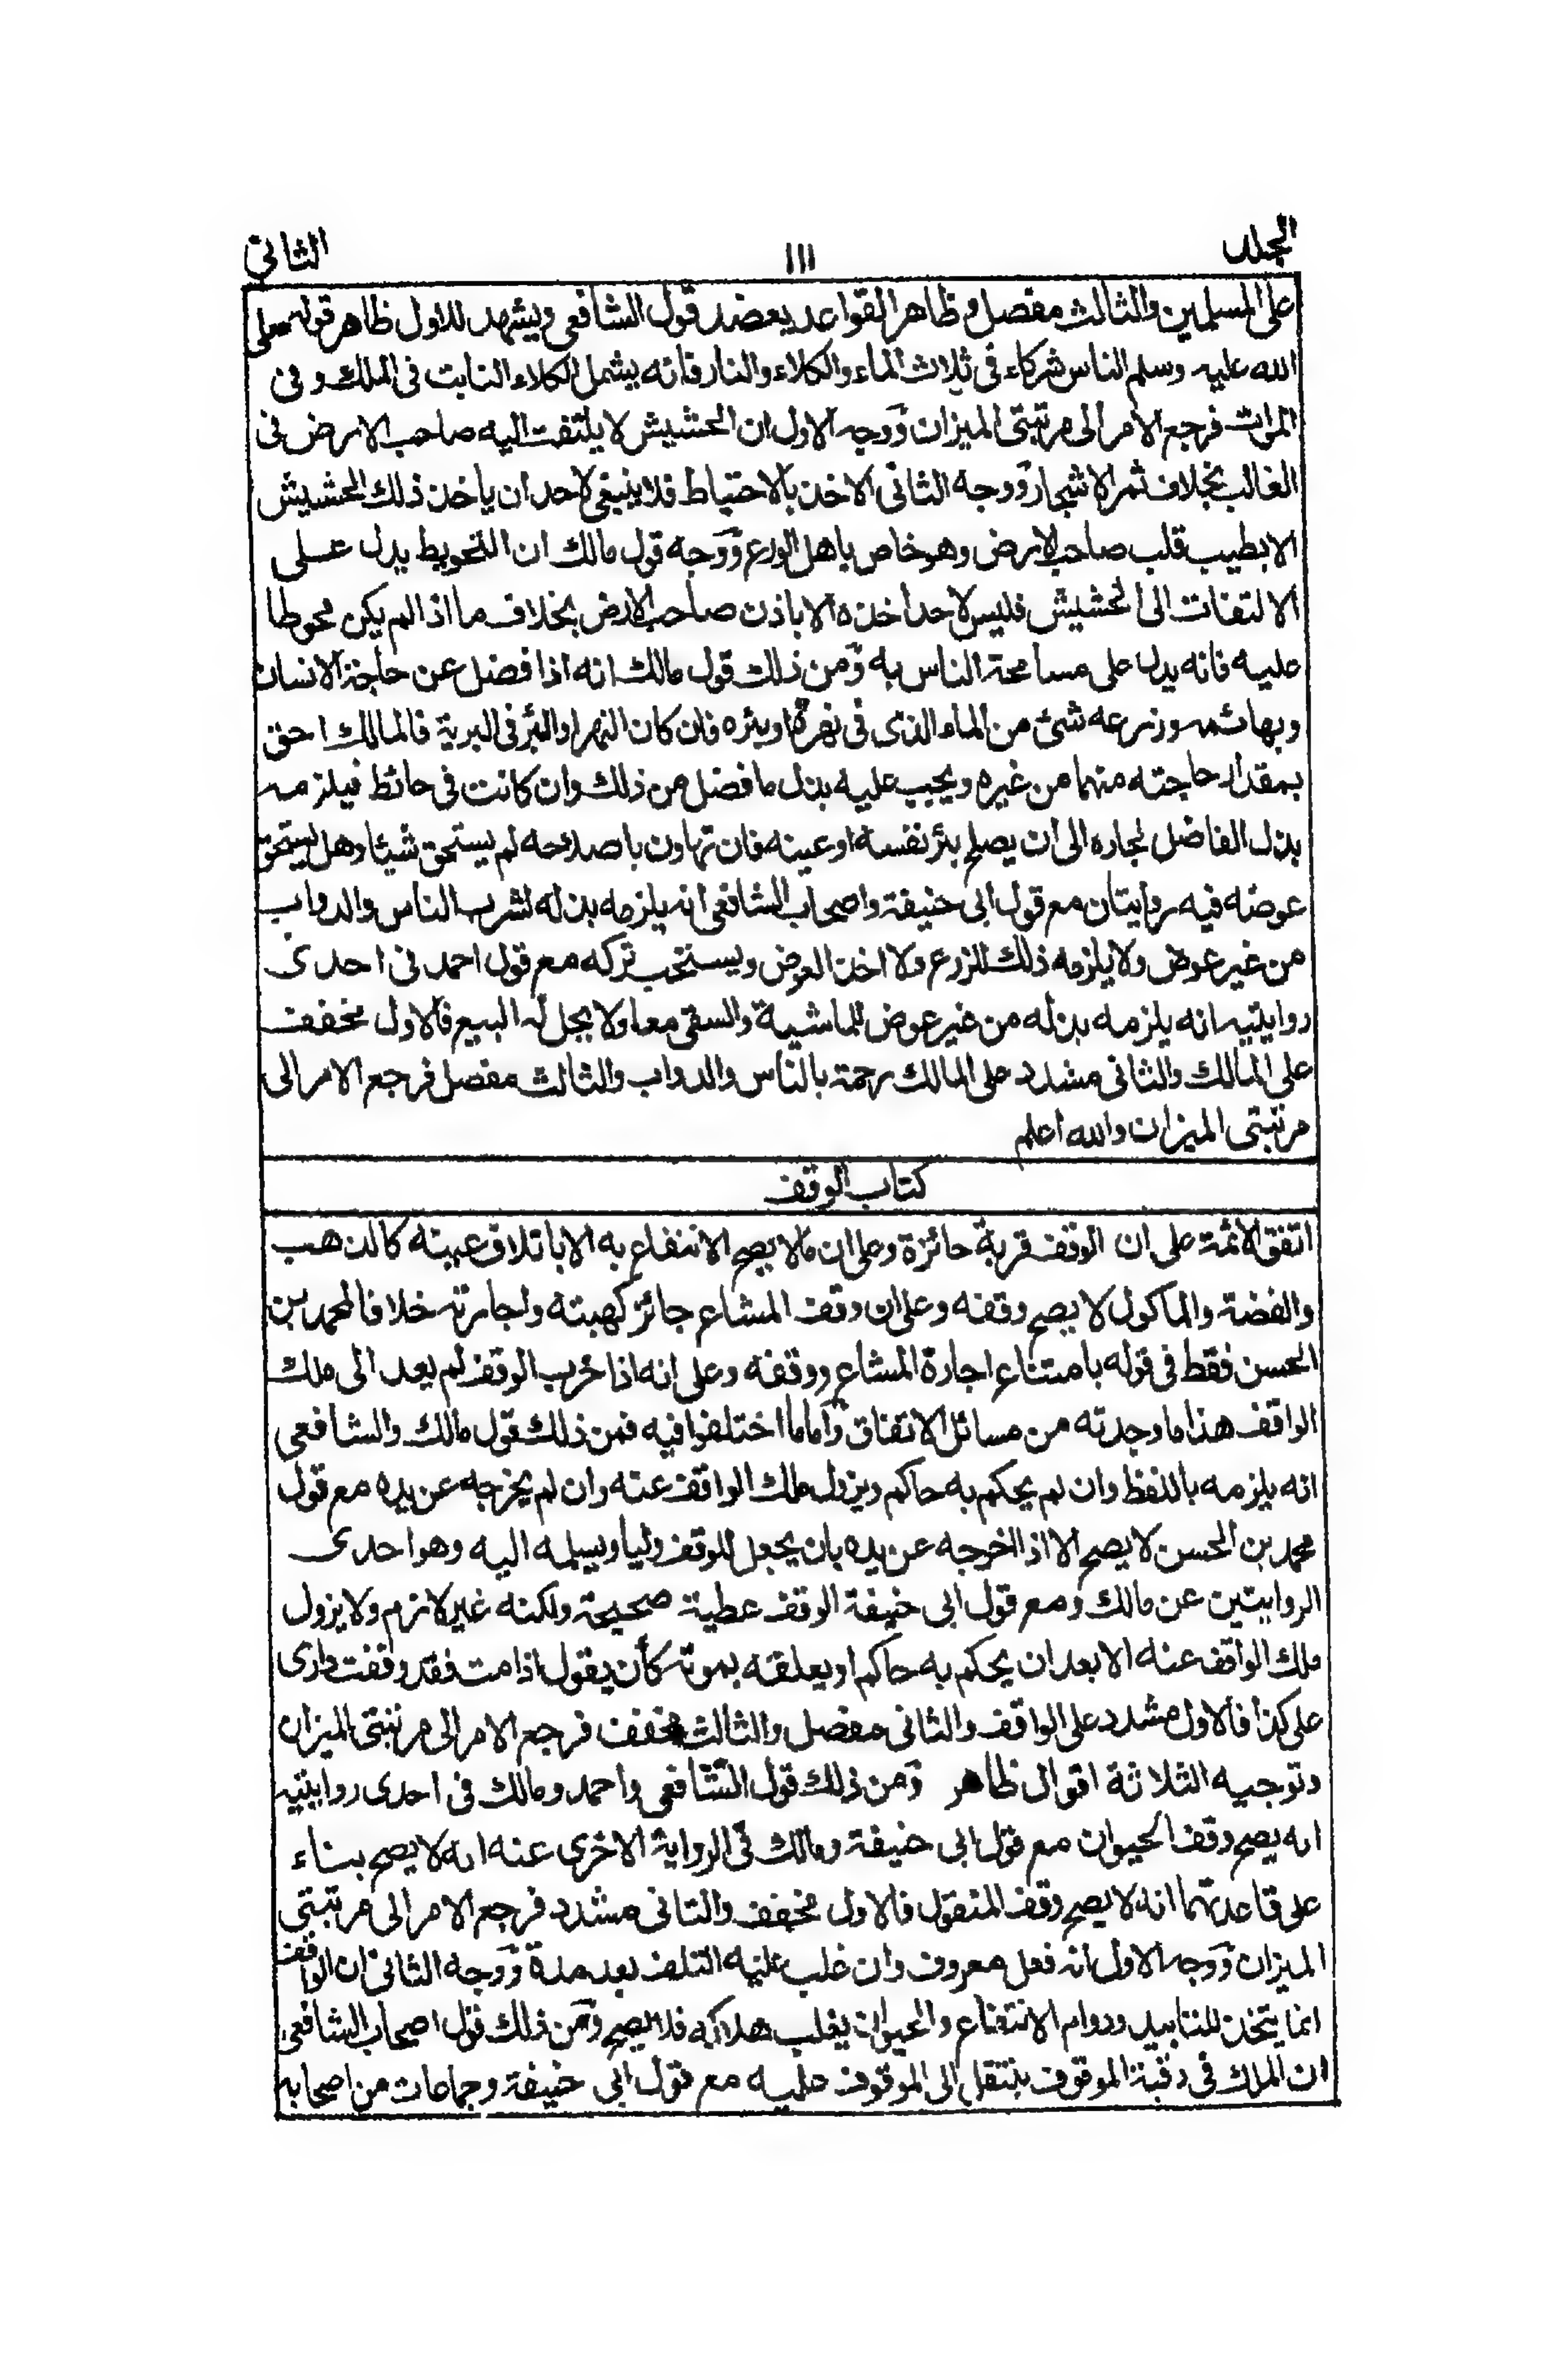 الجلد ١١١ الثاني
على المسلمين والثالث مفصل وظاهر القواعد يعضد قول الشافعى ويشهد للاول ظاهر قوله صلى
الله عليه وسلم الناس شركاء فى ثلاث الماء والكلاء والنار فانه يشمل الكلاء النابت فى الملك وفى
الموات فرجع الامر الى مرتبتى الميزان ووجه الاول ان الحشيش لا يلتفت اليه صاحب الارض فى
الغالب بخلاف ثمر الاشجار ووجه الثانى الاخذ بالاحتياط فلا ينبغى لاحد ان ياخذ ذلك الحشيش
الا بطيب قلب صاحب الارض وهو خاص باهل الورع ووجه قول مالك ان التحويط يدل على
الالتفات الى الحشيش فليس لاحد اخذه الا باذن صاحب الارض بخلاف ما اذا لم يكن محوطا
عليه فانه يدل على مسامحة الناس به ومن ذلك قول مالك انه اذا فضل عن حاجة الانسان
وبهائمه وزرعه شئ من الماء الذى فى نهره او بئره فان كان النهر او البئر فى البرية فالمالك احق
بمقدار حاجته منهما من غيره ويجب عليه بذل ما فضل من ذلك وان كانت فى حائط فيلزمه
بذل الفاضل لجاره الى ان يصلح بئر نفسه او عينه فان تهاون باصلاحه لم يستحق شيئا وهل يستحق
عوضه فيه روايتان مع قول ابى حنيفة واصحاب الشافعى انه يلزمه بذله لشرب الناس والدواب
من غير عوض ولا يلزمه ذلك للزرع ولا اخذ العوض ويستحب تركه مع قول احمد فى احدى
روايتيه انه يلزمه بذله من غير عوض للماشية والسقى معا ولا يحل له البيع فالاول مخفف
على المالك والثانى مشدد على المالك رحمة بالناس والدواب والثالث مفصل فرجع الامر الى
مرتبتى الميزان والله اعلم
كتاب الوقف
اتفق الائمة على ان الوقف قربة جائزة وعلى ان ما لا يصح الانتفاع به الا باتلاف عينه كالذهب
والفضة والماكول لا يصح وقفه وعلى ان وقف المشاع جائز كهبته واجارته خلافا لمحمد بن
الحسن فقط فى قوله بامتناع اجارة المشاع ووقفه وعلى انه اذا خرب الوقف لم يعد الى ملك
الواقف هذا ما وجدته من مسائل الاتفاق واما ما اختلفوا فيه فمن ذلك قول مالك والشافعى
انه يلزمه باللفظ وان لم يحكم به حاكم ويزول ملك الواقف عنه وان لم يخرجه عن يده مع قول
محمد بن الحسن لا يصح الا اذا اخرجه عن يده بان يجعل للوقف وليا ويسلمه اليه وهو احدى
الروايتين عن مالك ومع قول ابى حنيفة الوقف عطية صحيحة ولكنه غير لازم ولا يزول
ملك الواقف عنه الا بعد ان يحكم به حاكم او يعلقه بموته كأن يقول اذا مت فقد وقفت دارى
على كذا فالاول مشدد على الواقف والثانى مفصل والثالث مخفف فرجع الامر الى مرتبتى الميزان
وتوجيه الثلاثة اقوال ظاهر ومن ذلك قول الشافعى واحمد ومالك فى احدى روايتيه
انه يصح وقف الحيوان مع قول ابى حنيفة ومالك فى الرواية الاخرى عنه انه لا يصح بناء
على قاعدتهما انه لا يصح وقف المنقول فالاول مخفف والثانى مشدد فرجع الامر الى مرتبتى
الميزان ووجه الاول انه فعل معروف وان غلب عليه التلف بعد مدة ووجه الثانى ان الواقف
انما يتخذ للتابيد ودوام الانتفاع والحيوان يغلب هلاكه فلا يصح ومن ذلك قول اصحاب الشافعى
ان الملك فى رقبة الموقوف ينتقل الى الموقوف عليه مع قول ابى حنيفة وجماعات من اصحابه